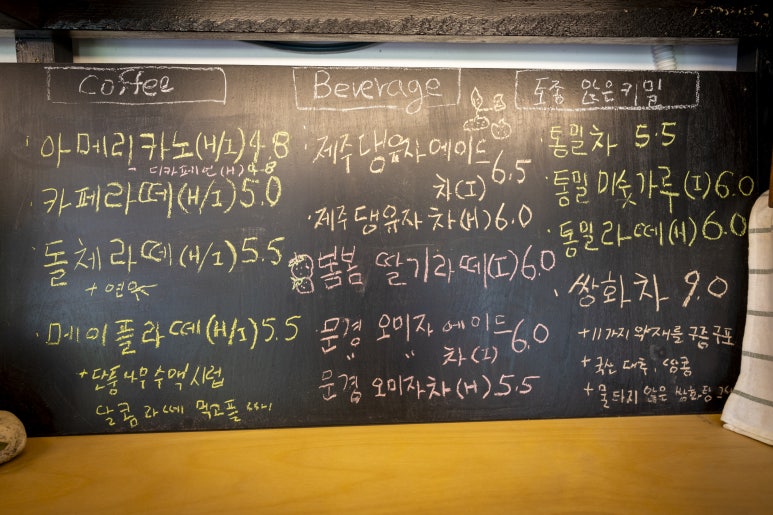 Coffee
아메리카노(H/I) 4.8
- 디카페인(H) 4.8
카페라떼(H/I) 5.0
돌체라떼(H/I) 5.5
+ 연유
메이플라떼(H/I) 5.5
+ 단풍나무수액시럽
달콤라떼 먹고플
Beverage
제주댕유자에이드
차(I) 6.5
제주댕유자차(H) 6.0
봄봄 딸기라떼(I) 6.0
문경 오미자 에이드
〃 〃 차(I) 6.0
문경 오미자차(H) 5.5
토종 앉은키밀
통밀차 5.5
통밀 미숫가루(I) 6.0
통밀라떼(H) 6.0
쌍화차 9.0
+ 11가지 약재를 구증구포
+ 국산 대추, 땅콩
+ 물 타지 않은 쌍화탕